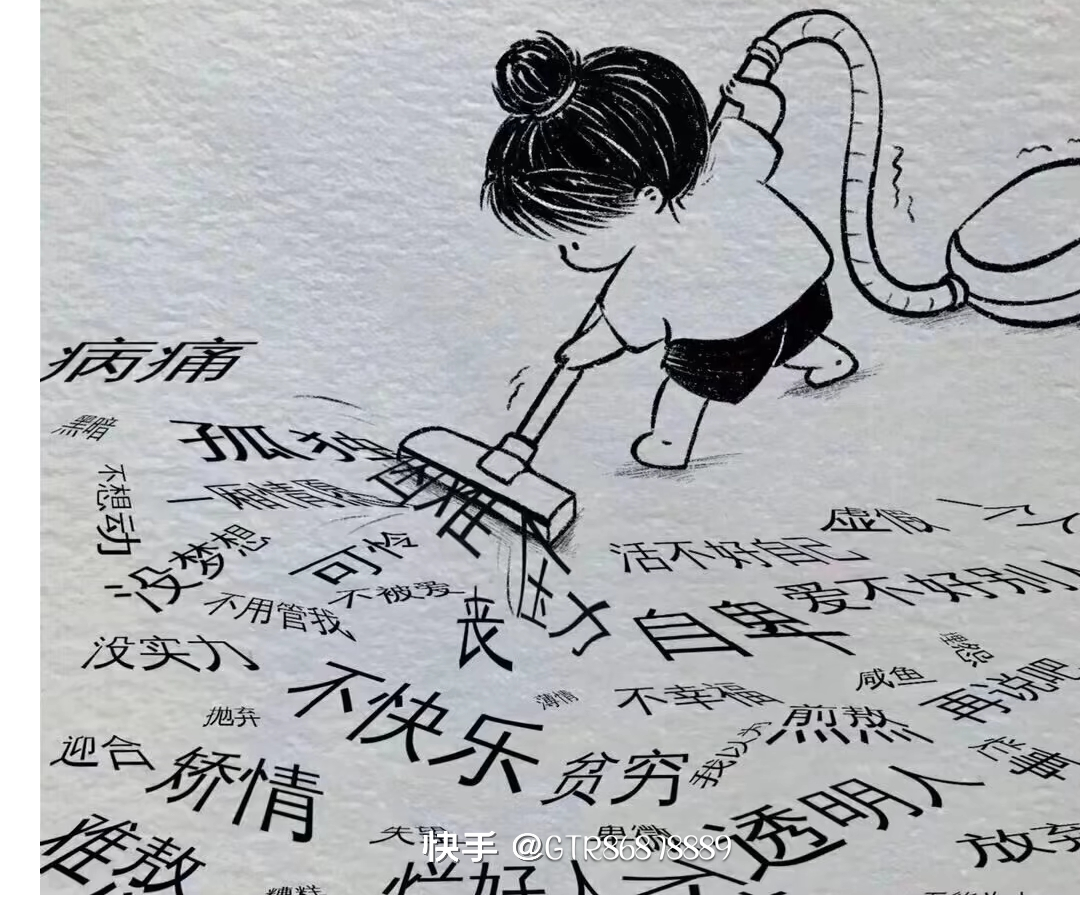 病痛
黑暗
孤独
不想动
一厢情愿
没梦想
可怜
虚假
活不好自己
不被爱
爱不好别人
不用管我
丧
压力
自卑
没实力
埋怨
不快乐
薄情
不幸福
咸鱼
再说吧
抛弃
煎熬
我以为
迎合
矫情
贫穷
透明人
难熬
卑微
放弃
烂好人
糟糕
快手 @GTR86878889